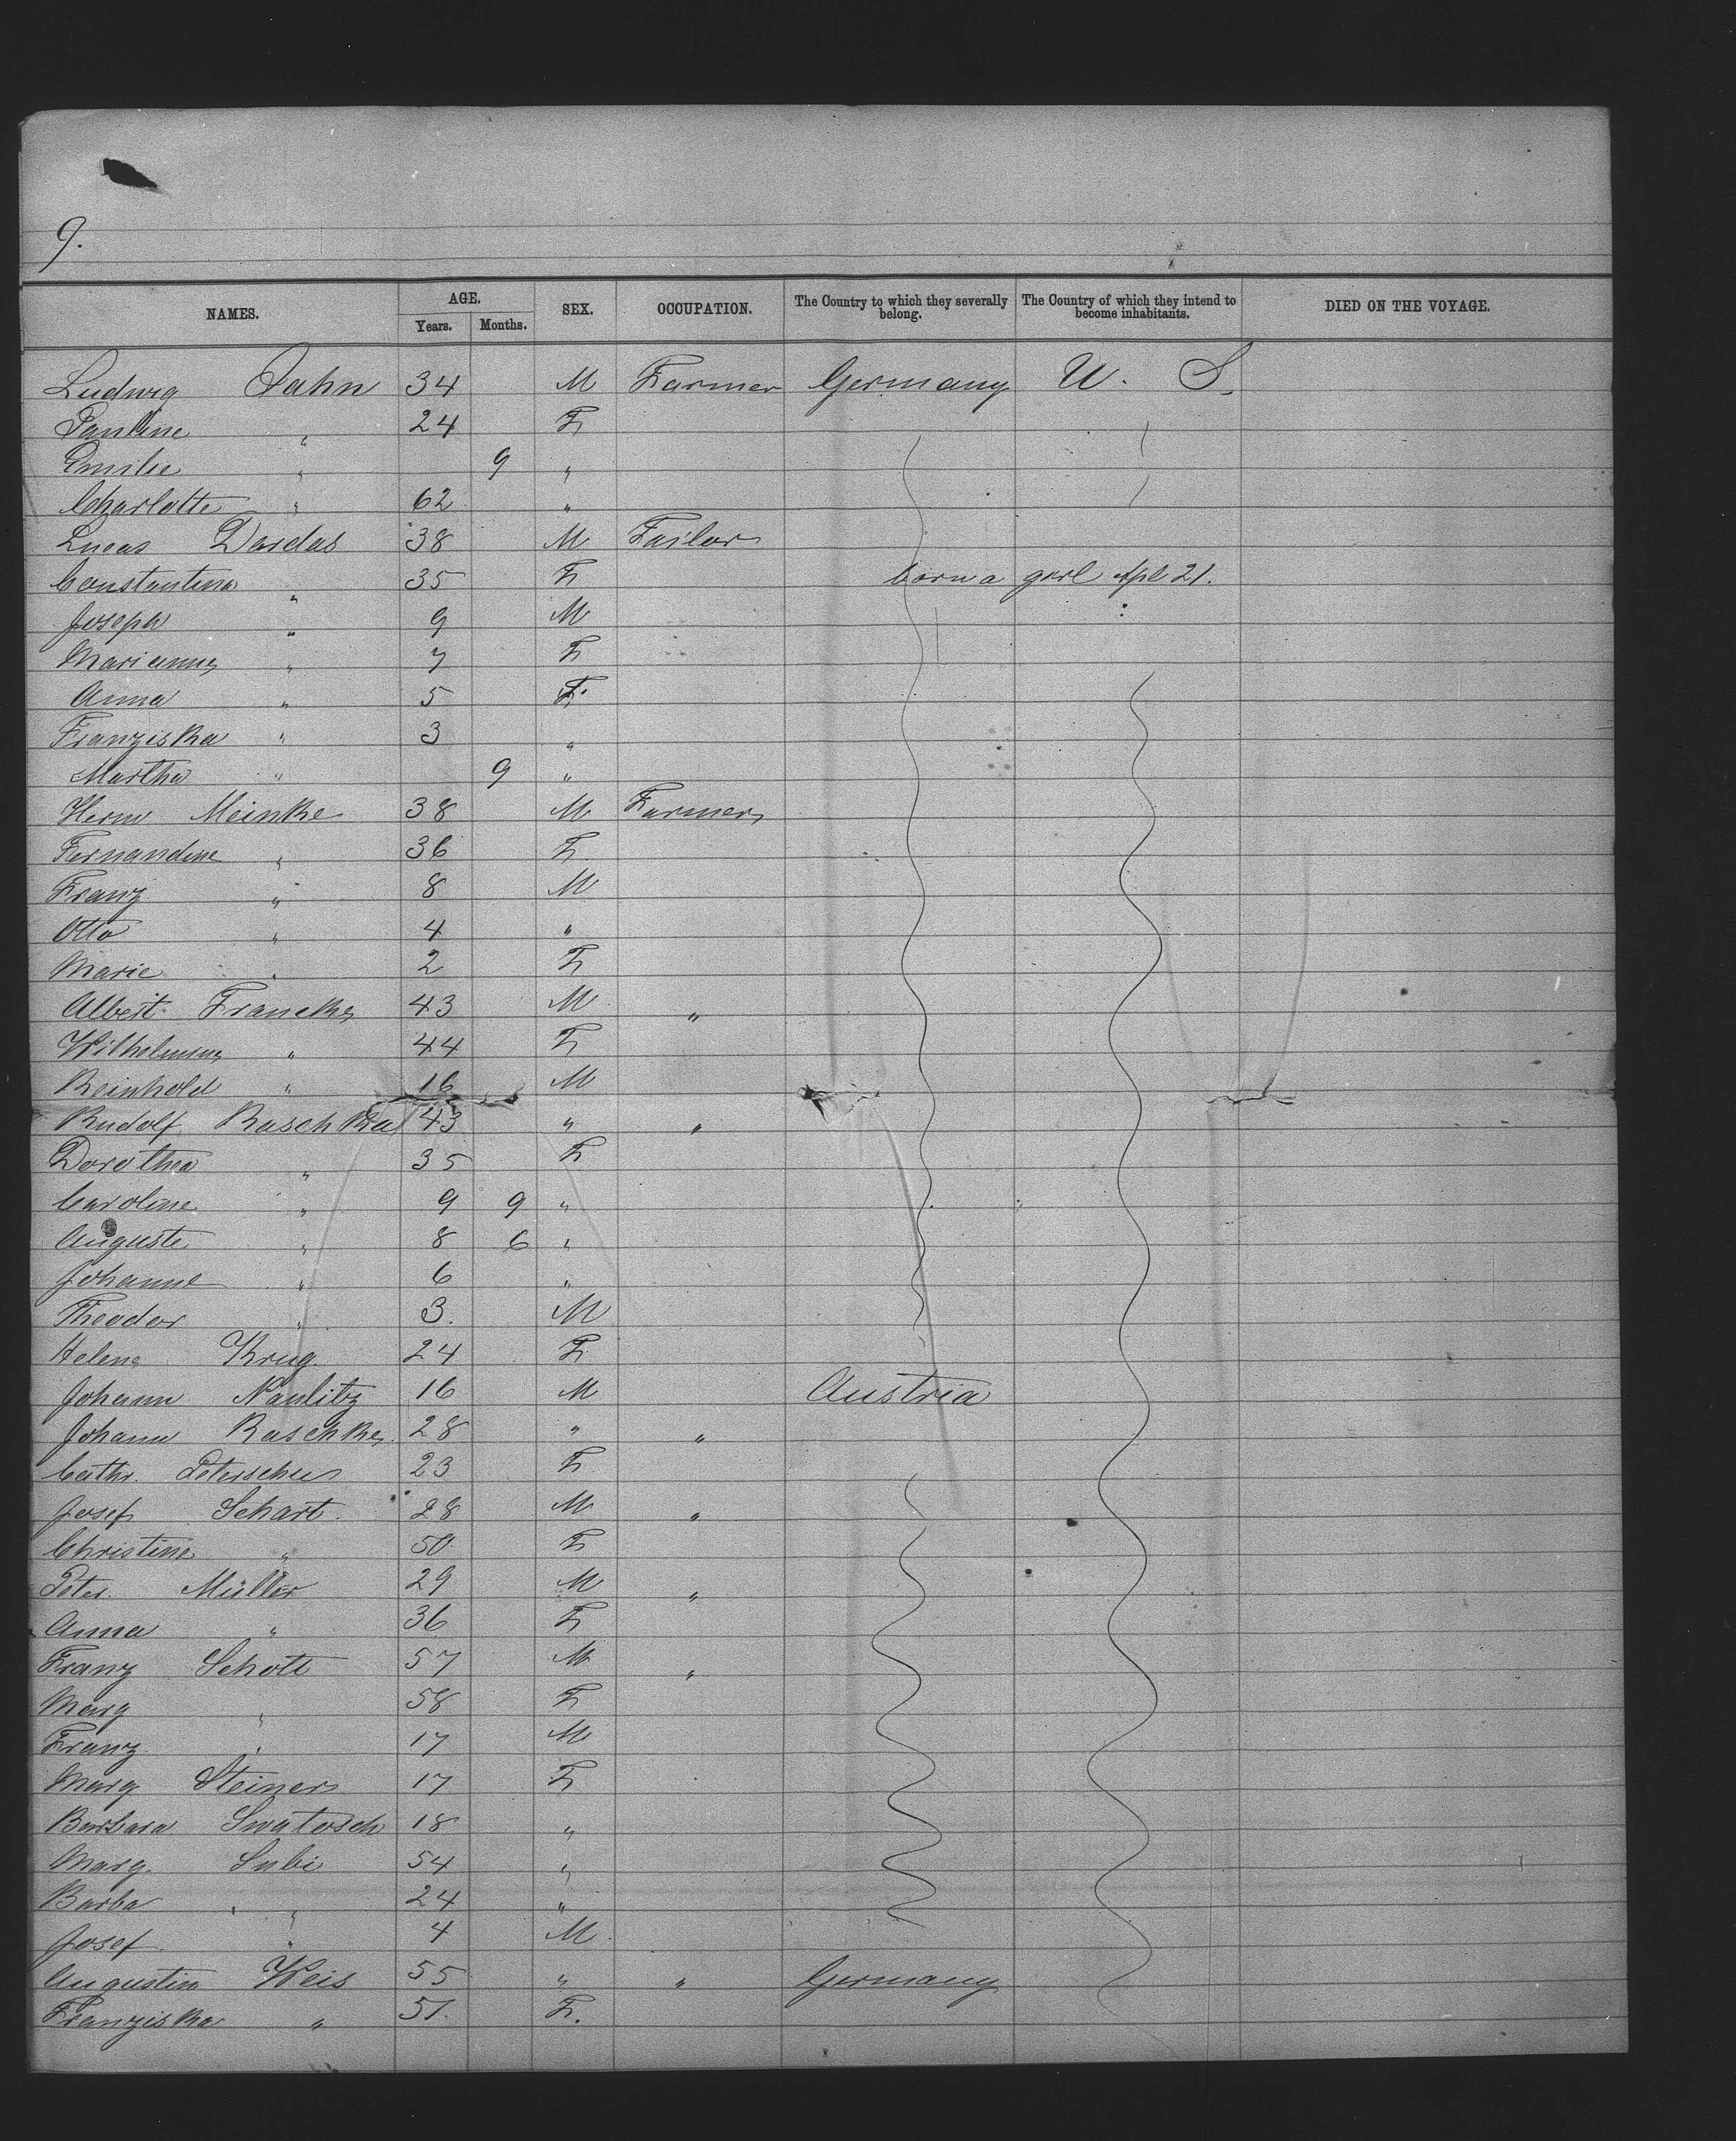 9.
NAMES. AGE. SEX. OCCUPATION. The Country to which they severally belong. The Country of which they intend to become inhabitants. DIED ON THE VOYAGE.
Years. Months.
Ludwig Jahn 34 M Farmer Germany U. S.
Pauline " 24 F
Emilie " 9 "
Charlotte " 62 "
Lucas Dardas 38 M Tailor
Constantina " 35 F born a girl Apl 21.
Joseph " 9 M
Marianne " 7 F
Anna " 5 F.
Franziska " 3 "
Martha " 9 "
Herm Meinke 38 M Farmer
Fernandine " 36 F
Franz " 8 M
Otto " 4 "
Marie " 2 F
Albert Francke 43 M "
Wilhelmine " 44 F
Reinhold " 16 M
Rudolf Raschka 43 " "
Dorothea " 35 F
Caroline " 9 9 "
Auguste " 8 6 "
Johanne " 6 "
Theodor " 3. M
Helene Krug. 24 F
Johann Naulitz 16 M Austria
Johann Raschke 28 " "
Cathr. 23 F
Josef Schart. 28 M "
Christine " 50. F
Peter. Müller 29 M "
Anna " 36 F
Franz Schott 57 M "
Marg " 58 F
Franz " 17 M
Marg Steiner 17 F
Barbara Swatosch 18 "
Marg. Subi 54 "
Barba " 24 "
Josef " 4 M
Augustin Weis 55 " " Germany
Franziska " 51. F.